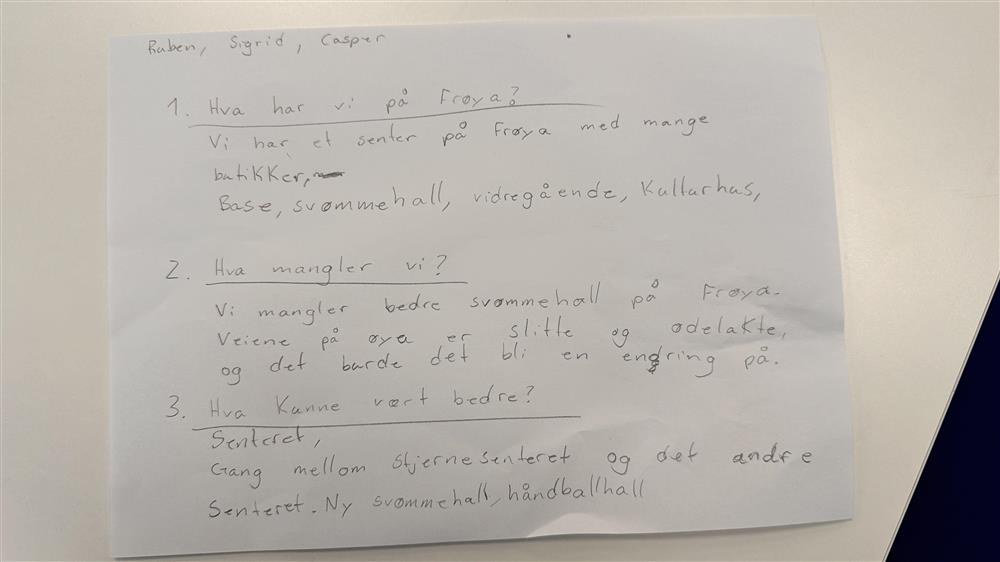 Ruben, Sigrid, Casper
1. Hva har vi på Frøya?
Vi har et senter på Frøya med mange
butikker,
Base, svømmehall, vidregående, Kulturhus,
2. Hva mangler vi?
Vi mangler bedre svømmehall på Frøya.
Veiene på øya er slitte og ødelakte,
og det burde det bli en endring på.
3. Hva Kunne vært bedre?
Senteret,
Gang mellom stjernesenteret og det andre
Senteret. Ny svømmehall, håndballhall